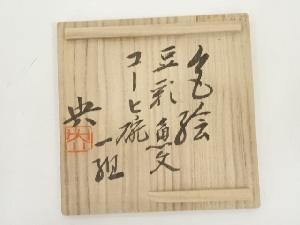 色絵
豆彩魚文
コーヒ碗
一組
央